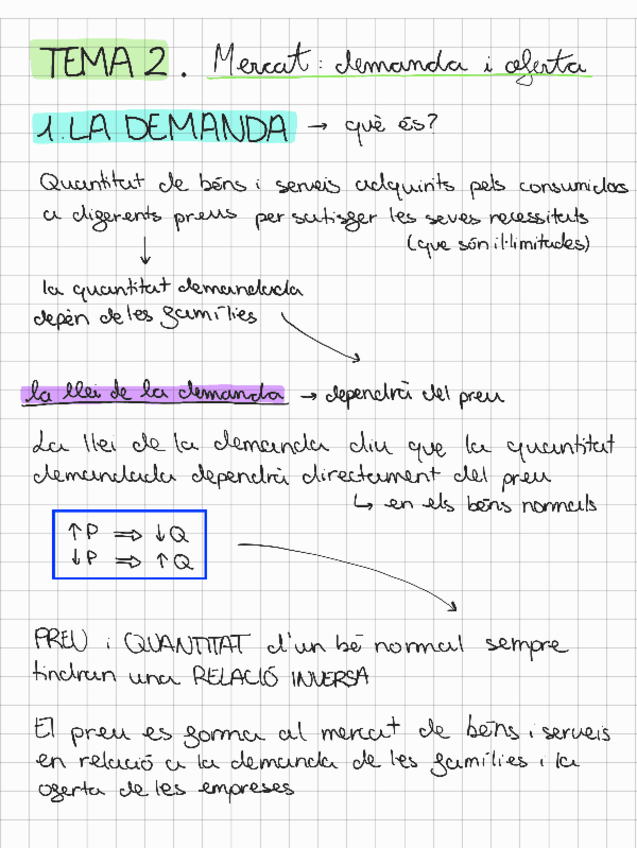 TEMA 2. Mercat: demanda i oferta
1. LA DEMANDA → què és?
Quantitat de béns i serveis adquirits pels consumidos
a diferents preus per satisfer les seves necessitats
(que són il·limitades)
la quantitat demandada
depèn de les famílies
la llei de la demanda → dependrà del preu
La llei de la demanda diu que la quantitat
demandada dependrà directament del preu
↳ en els béns normals
↑P ⇒ ↓Q
↓P ⇒ ↑Q
PREU i QUANTITAT d'un bé normal sempre
tindran una RELACIÓ INVERSA
El preu es forma al mercat de béns i serveis
en relació a la demanda de les famílies i la
oferta de les empreses